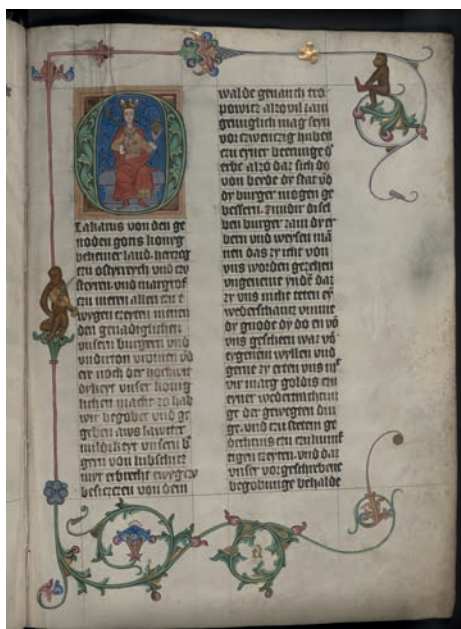 takarus von den ge
noden gotis konyg
behemer land. herzog
czu ostyrrych und czu
steyren und margrof
czu meren allen czu e
wygen czeyten meren
den genadiglichen
unsern burgern und
undirton vromen vō
ere noch der hochwir
dykeyt unser konig
lichen macht zo hab
wir begobet und ge
geben aws lawter
mildikeyt unsern b
gern von lubschicz
myt erbrecht ewyger
von dem
walde genanth tro
powicz alzovil ram
genuglich mag seyn
vor czwenczig huben
czu eyner
erbe alzo daz sich do
von beyde dy stat vō
dy burger mogen ge
bessern. disel
ben burger dy er
bern und weysen mā
nen das zy icht von
vns worden gezehen
daz
zy vns nicht teten ey
vmme
dy gnode dy do en vō
vns gescheen war vō
eygenem wyllen und
gerne zy erten vns mit
vir marg goldis czu
eyner
ge der gewegten din
ge. und czu stetem ge
dechtnis czu czukunf
tigen czeyten. und daz
vnser vorgeschrebene
begobunge behalde